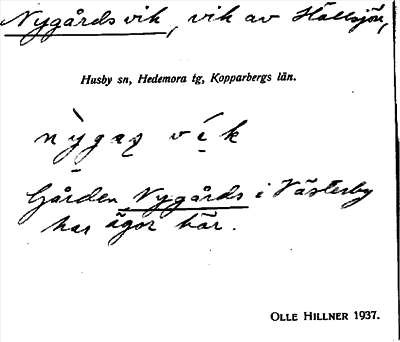 Nygårdsvik, vik av Hällsjön,
Husby sn, Hedemora tg, Kopparbergs län.
nỳgaṣ vík
Gården Nygårds i Västerby
har ägor här.
OLLE HILLNER 1937.